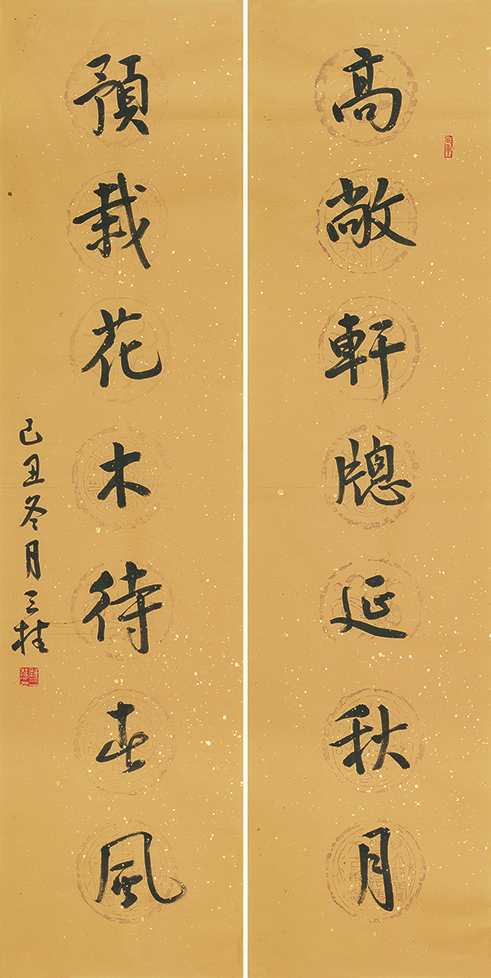 高敞軒牕延秋月
預栽花木待春風
己丑冬月三桂